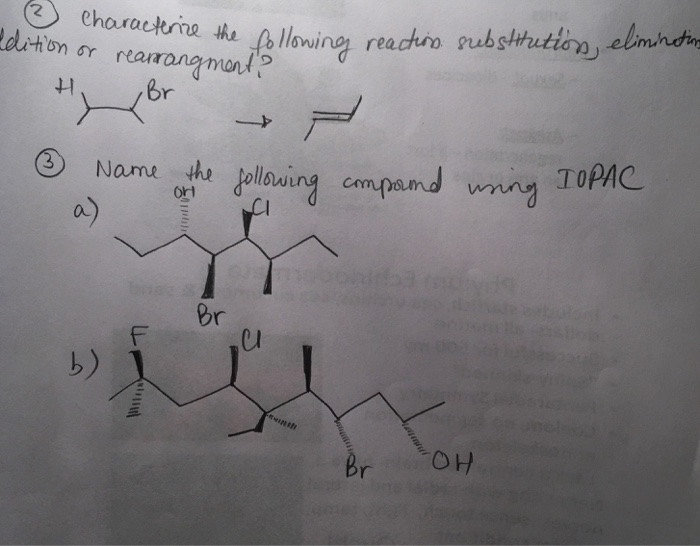 ② Characterize the following reaction substitution, elimination
ddition or rearrangment?
H Br
③ Name the following compound using IUPAC
a) OH Cl
Br
b) F Cl
Br OH